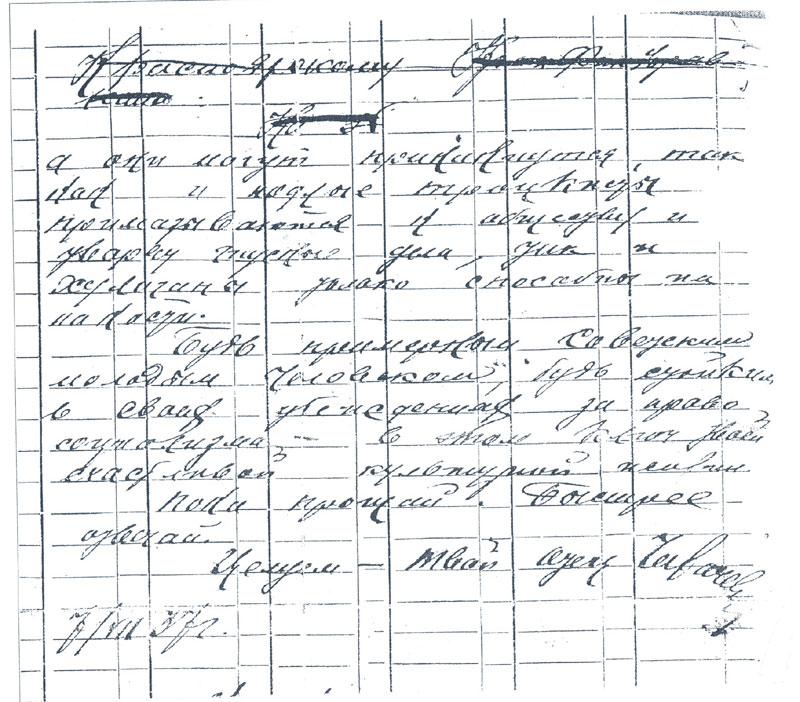 Красноярскому
а они могут прикинутся, так
как и подлые троцкисты
примазываются к
дела, так и
хулиганы только способны на
пакости.
Будь примерным советским
молодым человеком, будь стойким
в своих убеждениях за право
социализма — в этом ключ твоей
счастливой культурной жизни
Пока прощай. Быстрее
отвечай.
Целуем — твой отец
7/VIII 37 г.